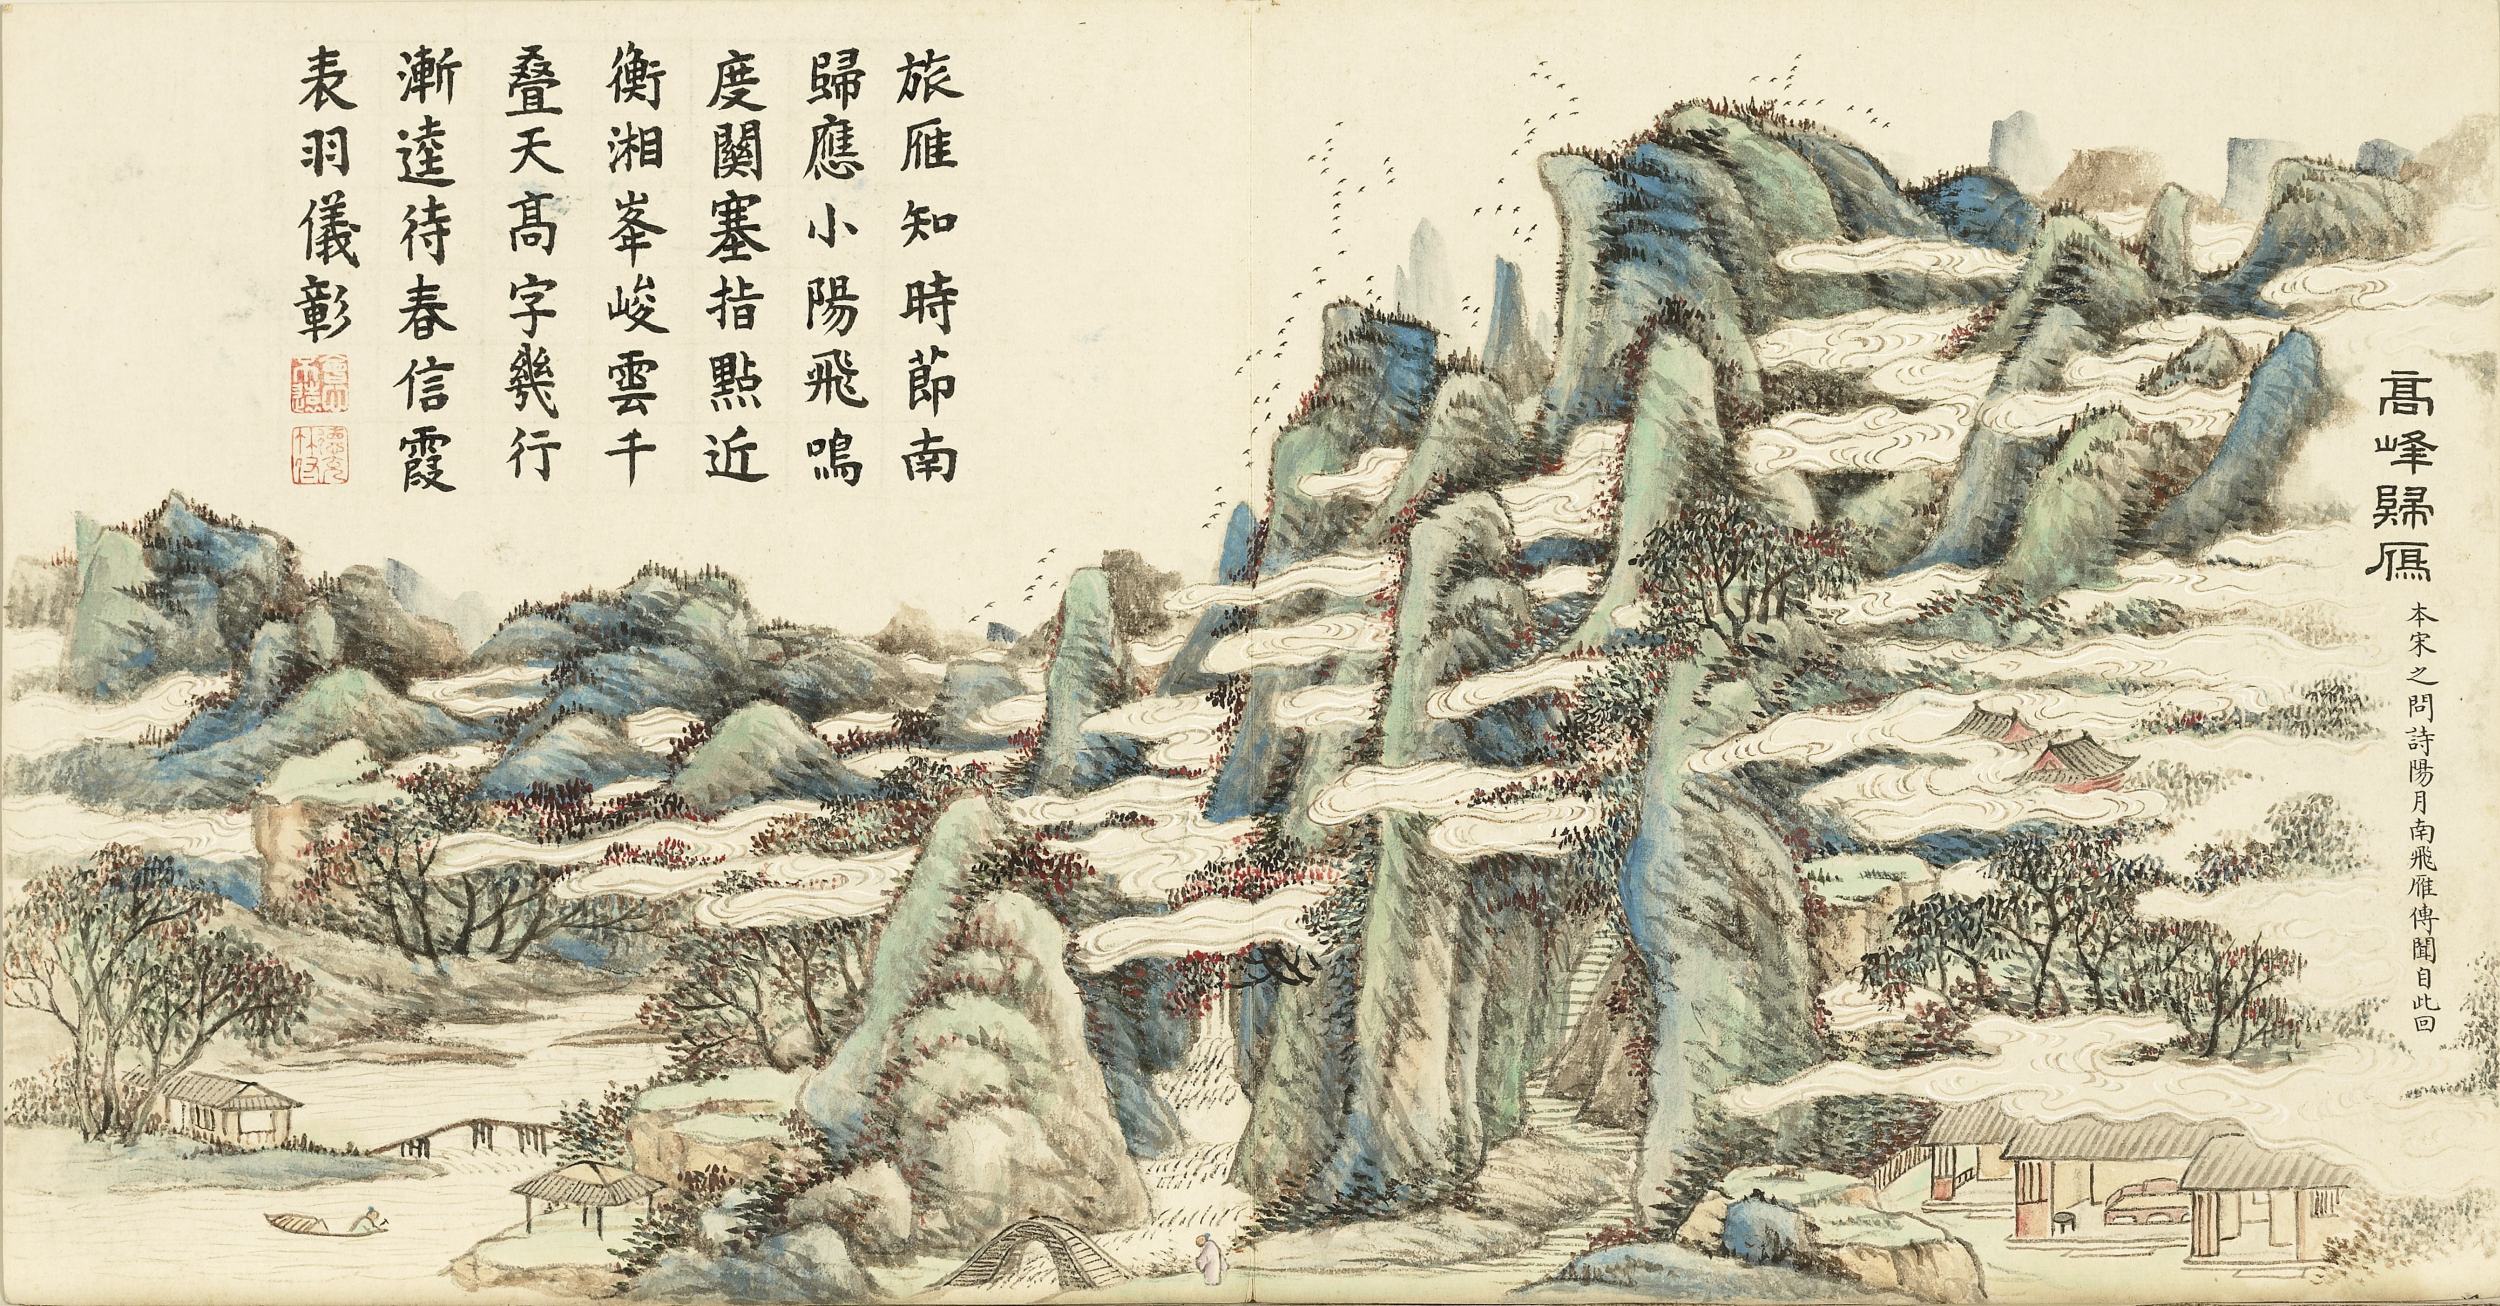 髙峰歸鴈
本宋之問詩陽月南飛雁傳聞自此回
旅雁知時節南
歸應小陽飛鳴
度關塞指點近
衡湘峯峻雲千
疊天髙字幾行
漸逵待春信霞
表羽儀彰